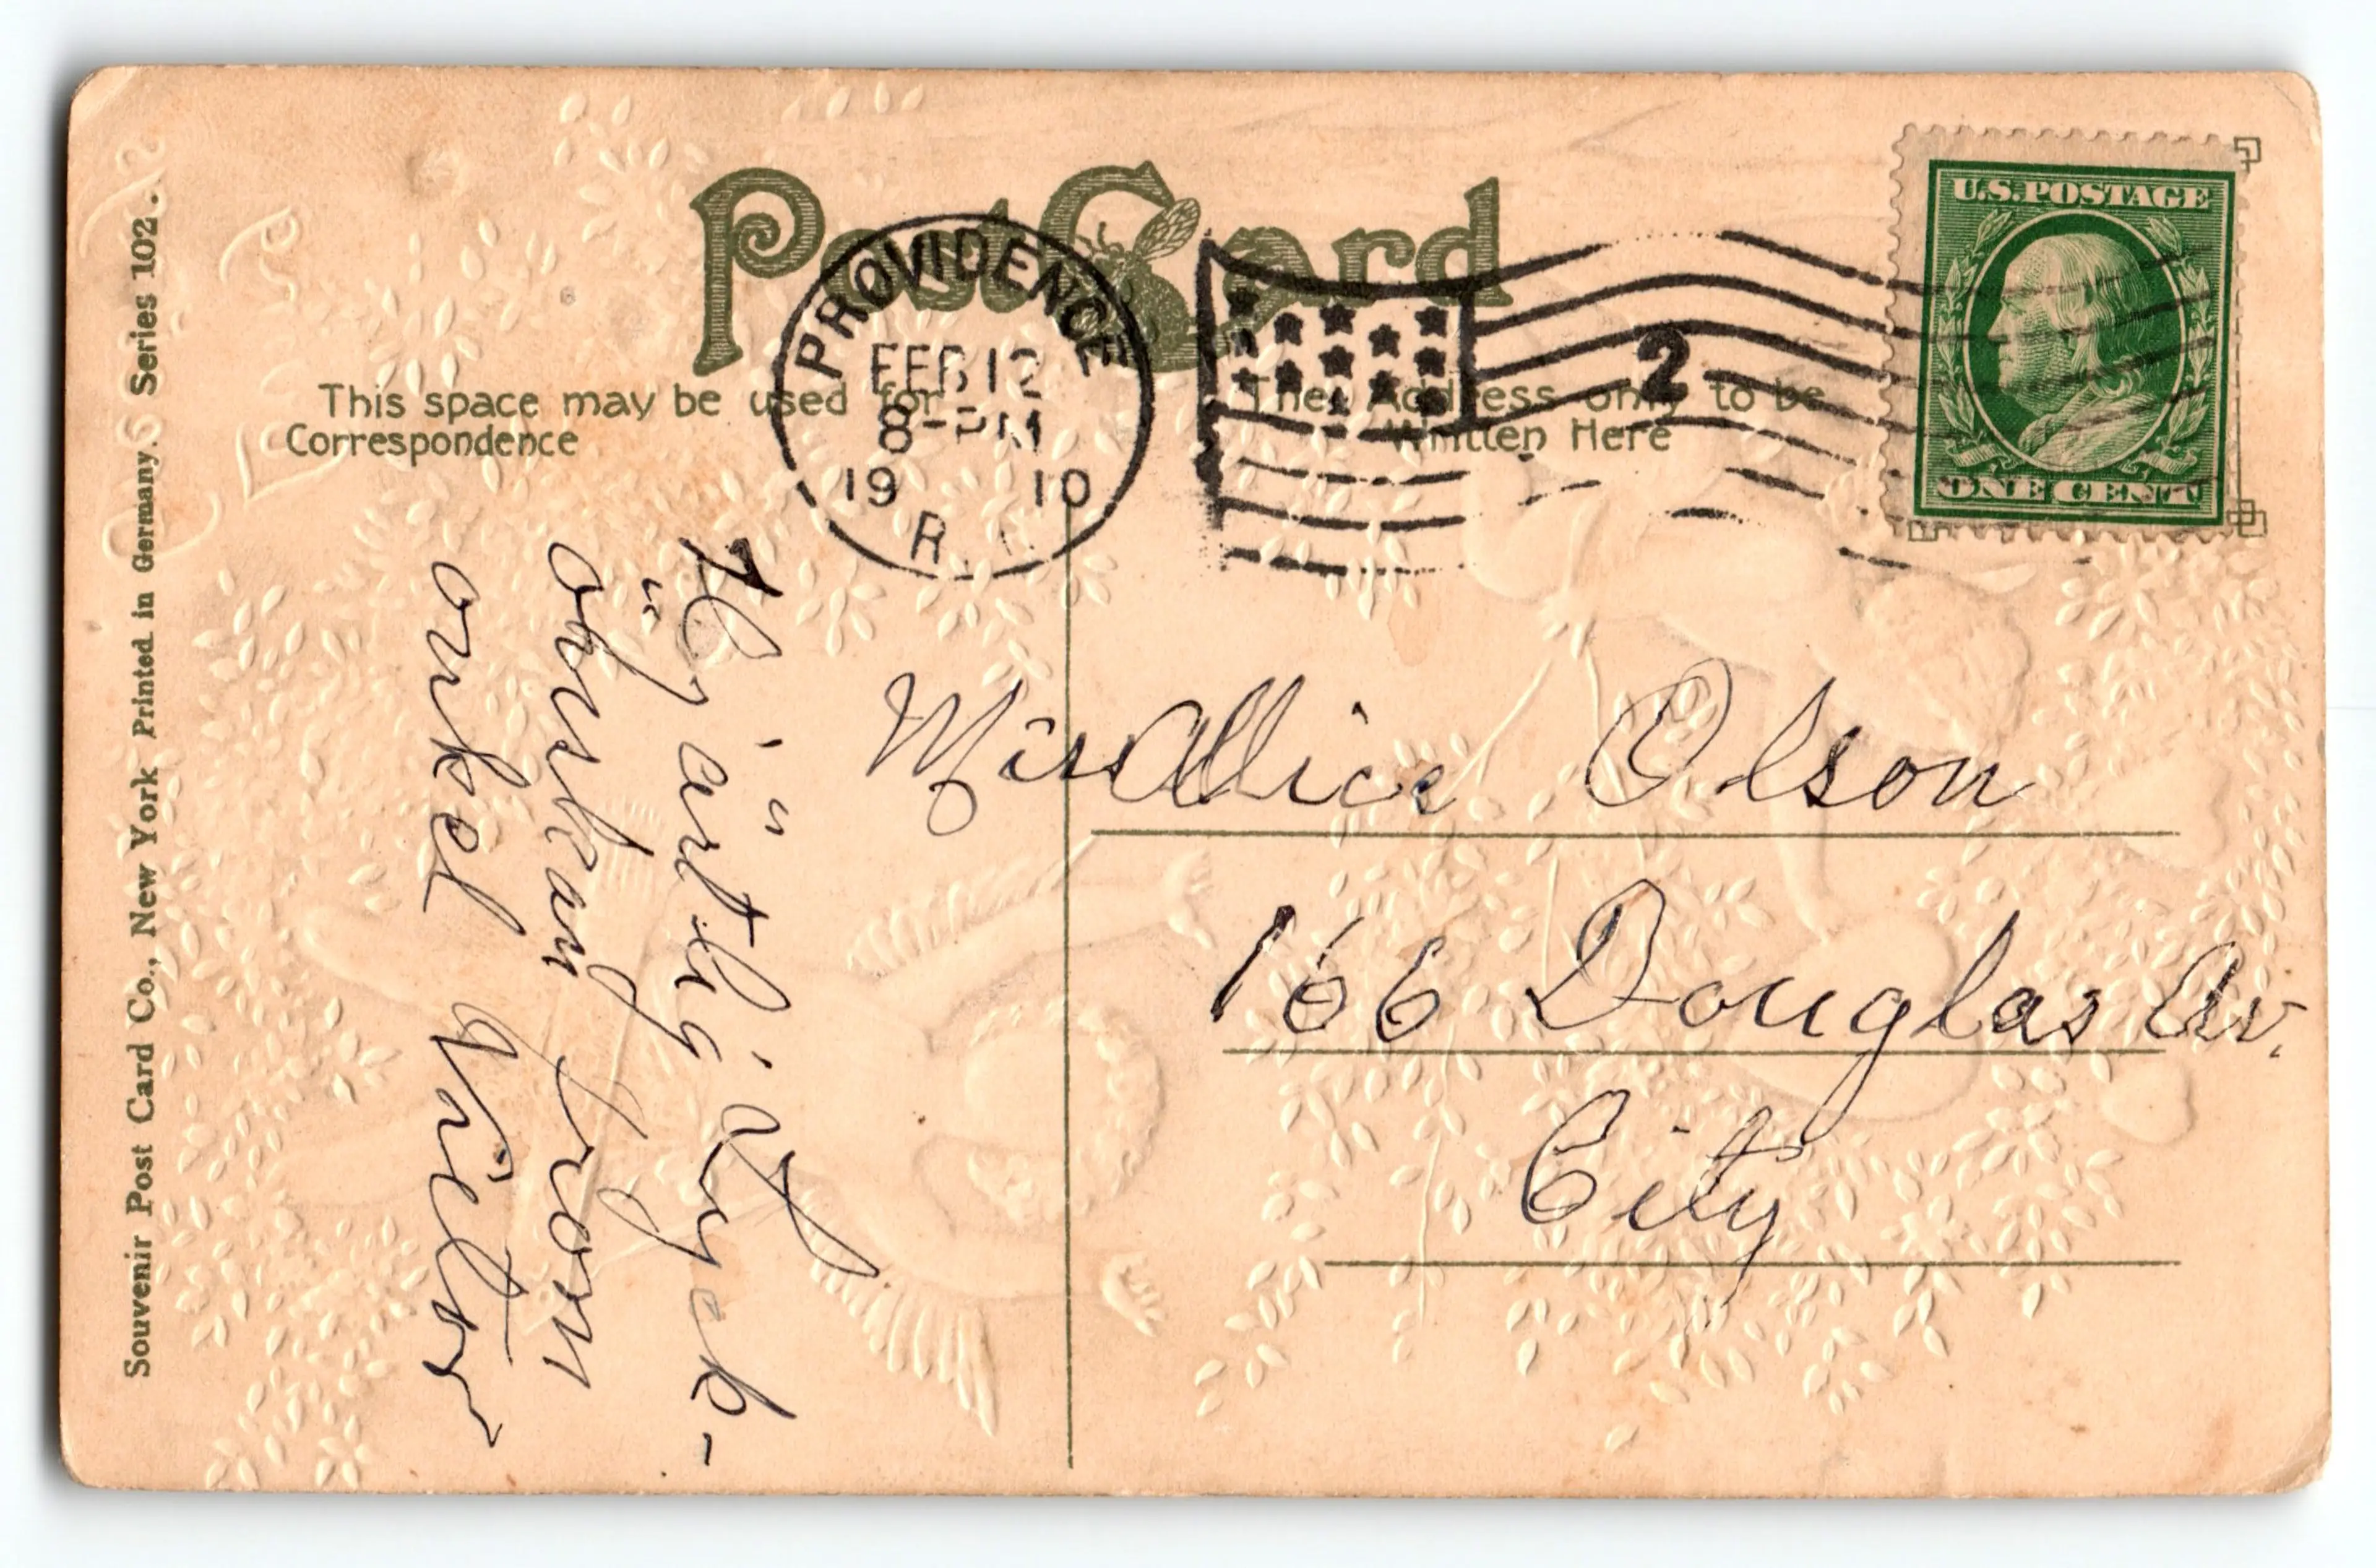 Post Card
PROVIDENCE
FEB 12
8-PM
19 10
R.I.
2
U.S. POSTAGE
ONE CENT
This space may be used for
Correspondence
The Address only to be
Written Here
Hjärtlig Lyck-
önskan from
onkel Victor
Miss Allice Olson
166 Douglas Av.
City
Souvenir Post Card Co., New York Printed in Germany. Series 102.